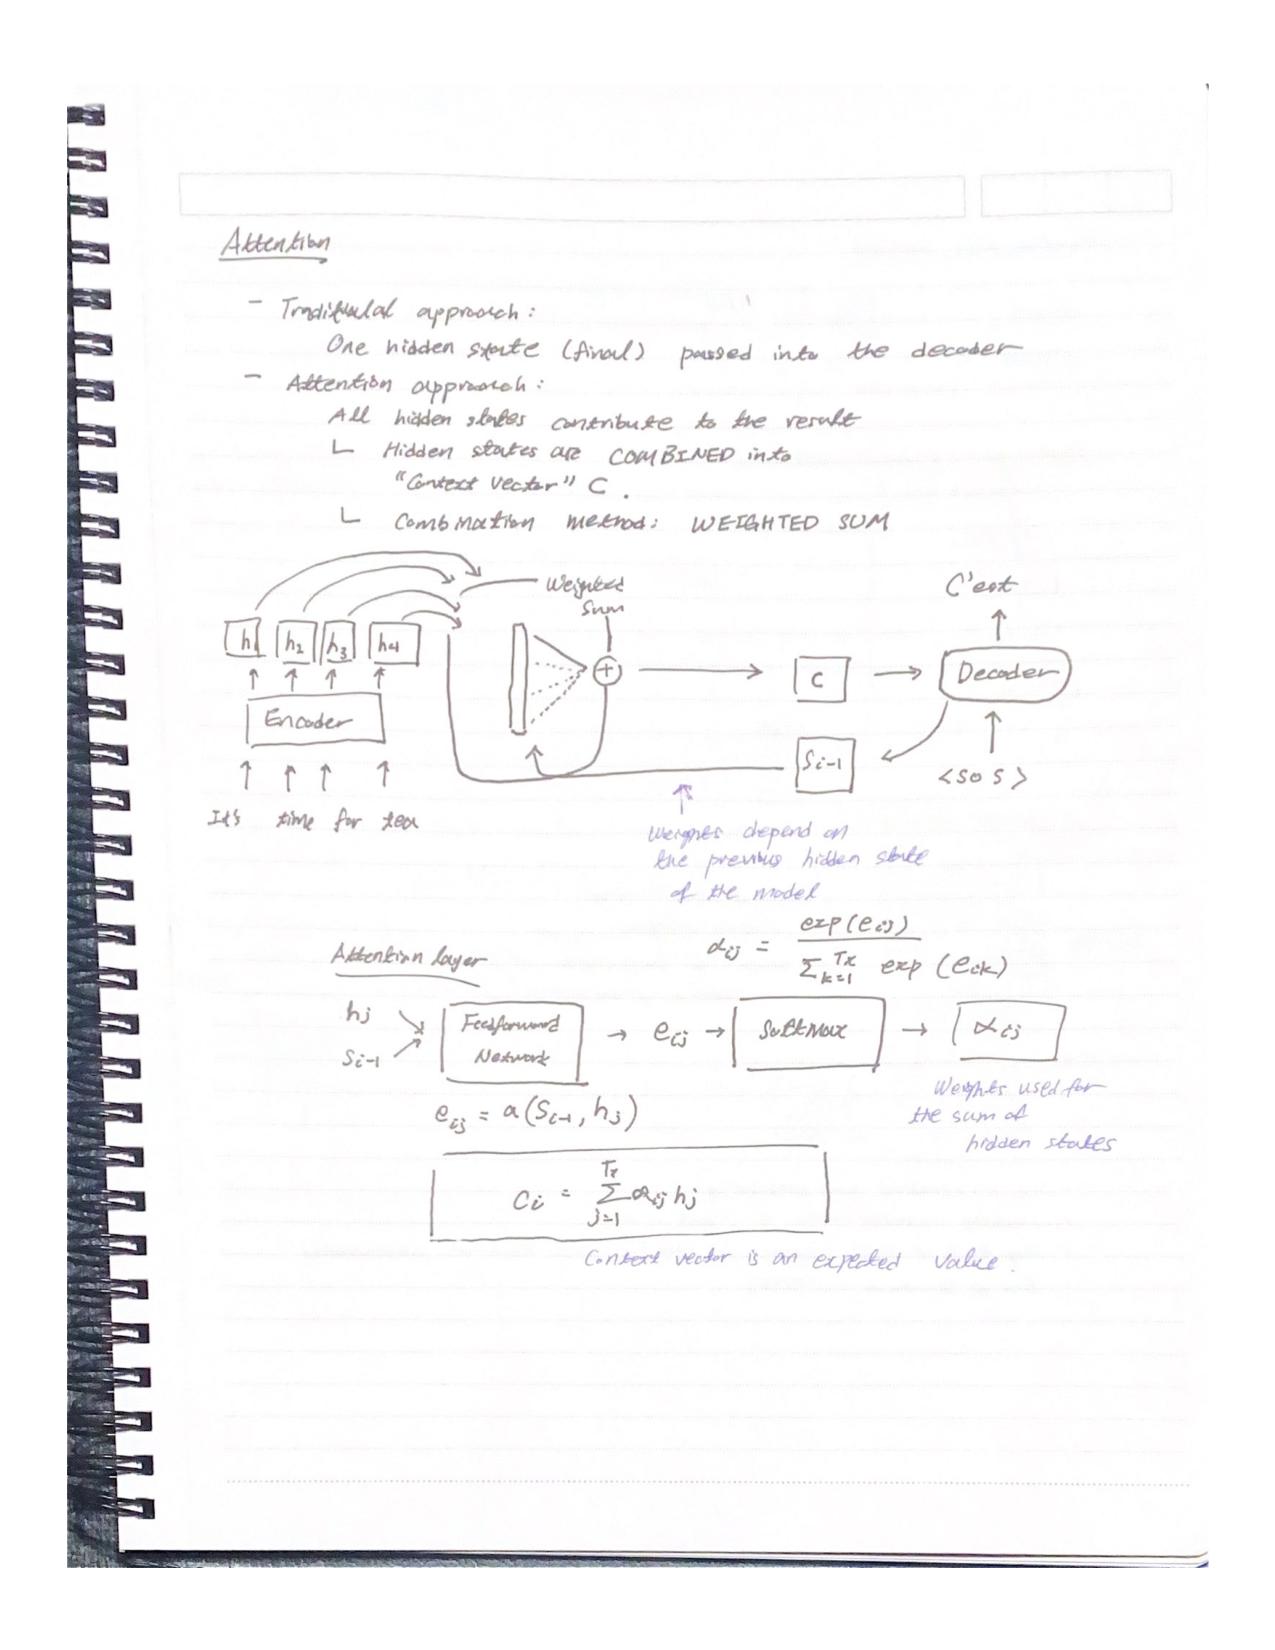 Attention
- Traditional approach:
One hidden state (final) passed into the decoder
- Attention approach:
All hidden states contribute to the result
└ Hidden states are COMBINED into
"Context vector" C.
└ Combination method: WEIGHTED SUM
Weighted
Sum
C'est
h1 h2 h3 h4
+
C
Decoder
Encoder
Si-1
<SOS>
It's time for tea
Weights depend on
the previous hidden state
of the model
αij = exp(eij) / Σ k=1 Tx exp(eik)
Attention layer
hj
Si-1
Feedforward
Network
→ eij →
Softmax
→
αij
Weights used for
the sum of
hidden states
eij = a(Si-1, hj)
Ci = Σ j=1 Tx αij hj
Context vector is an expected value.